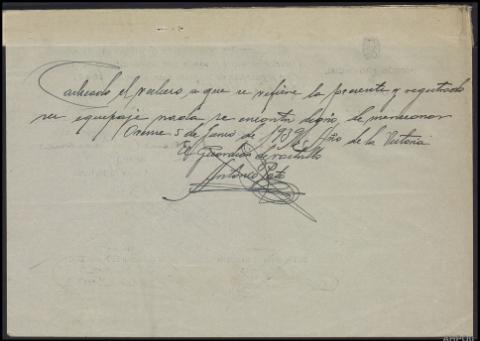 Cacheado el recluso a que se refiere la presente y registrado
su equipaje nada se encontró digno, de mencionar
Orense 5 de Junio de 1939 Año de la Victoria
El Guardian de rastrillo
Antonio
AHPOU